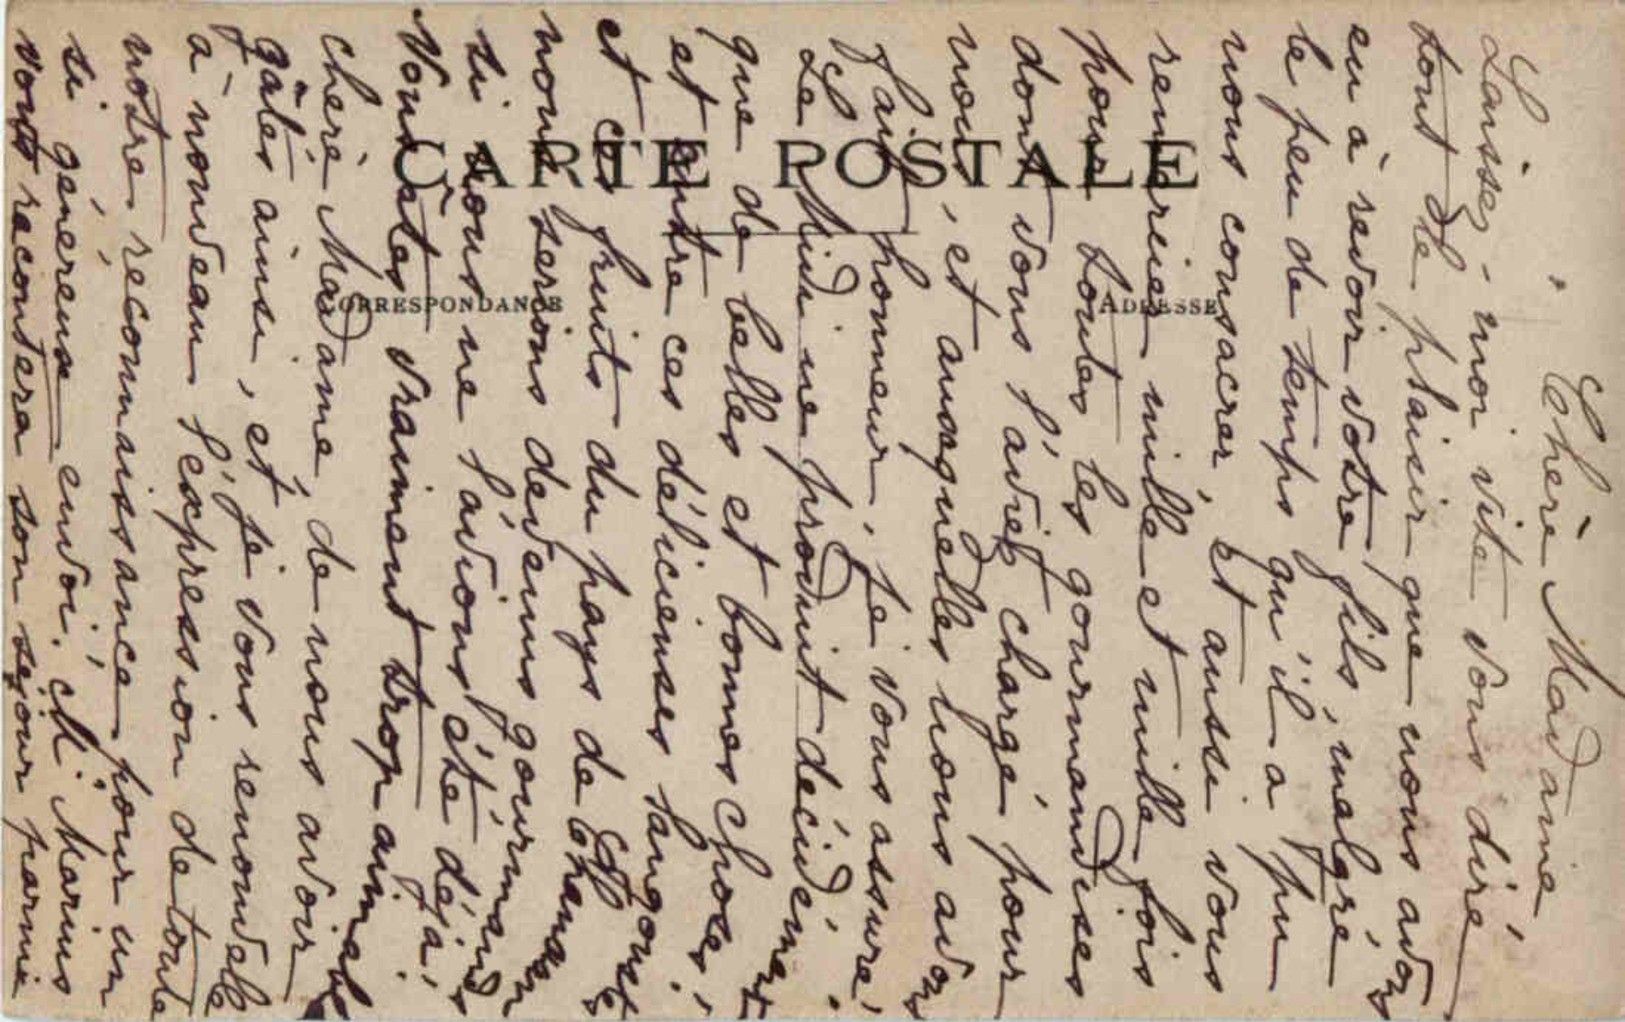 CARTE POSTALE
CORRESPONDANCE
ADRESSE
Chère Madame
Laissez-moi vite vous dire
tout de plaisir que nous avons
eu à revoir votre fils, malgré
le peu de temps qu'il a pu
nous consacrer, et aussi vous
remercier mille et mille fois
pour toutes les gourmandises
dont vous l'aviez chargé pour
nous, et auxquelles nous avons
fait honneur, je vous assure!
Le Midi ne produit décidément
que de belles et bonnes choses!
et entre ces délicieuses langoustes
et ces fruits du pays de
nous serions devenus gourmands
si nous ne l'avions été déjà!
Vous êtes vraiment trop aimable
chère Madame, de nous avoir
gâtés ainsi, et je vous renouvelle
à nouveau l'expression de toute
notre reconnaissance pour un
si généreux envoi. Mr Marius
vous racontera son séjour parmi